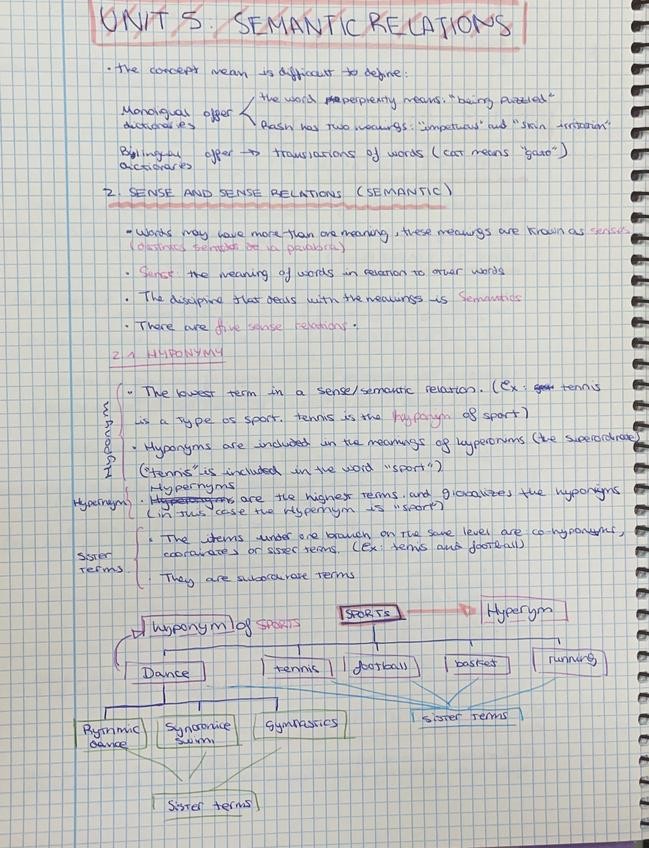 UNIT 5. SEMANTIC RELATIONS
· The concept mean is difficult to define:
Monolingual offer dictionaries
the word perplexity means: "being puzzled"
Rash has two meanings: "impetuous" and "skin irritation"
Bilingual offer → translations of words (cat means "gato")
dictionaries
2. SENSE AND SENSE RELATIONS (SEMANTIC)
· Words may have more than one meaning, these meanings are known as senses
(distintos sentidos de la palabra)
· Sense: the meaning of words in relation to other words
· The discipline that deals with the meanings is Semantics
· There are five sense relations.
2.1 HYPONYMY
HYPONYM
· The lowest term in a sense/semantic relation. (Ex: tennis
is a type os sport. tennis is the hyponym of sport)
· Hyponyms are included in the meanings of hyperonims (the superordinate)
("tennis" is included in the word "sport")
Hypernyms
Hypernym · are the highest terms. and globalizes the hyponyms
(in this case the Hypernym is "sport")
Sister terms
· The items under one branch on the same level are co-hyponyms,
coordinates or sister terms. (Ex: tennis and football)
· They are subordinate terms
SPORTS → Hyperym
hyponym of SPORTS
Dance tennis football basket running
Rythmic dance Syncronice swimi Gymnastics
sister terms
Sister terms